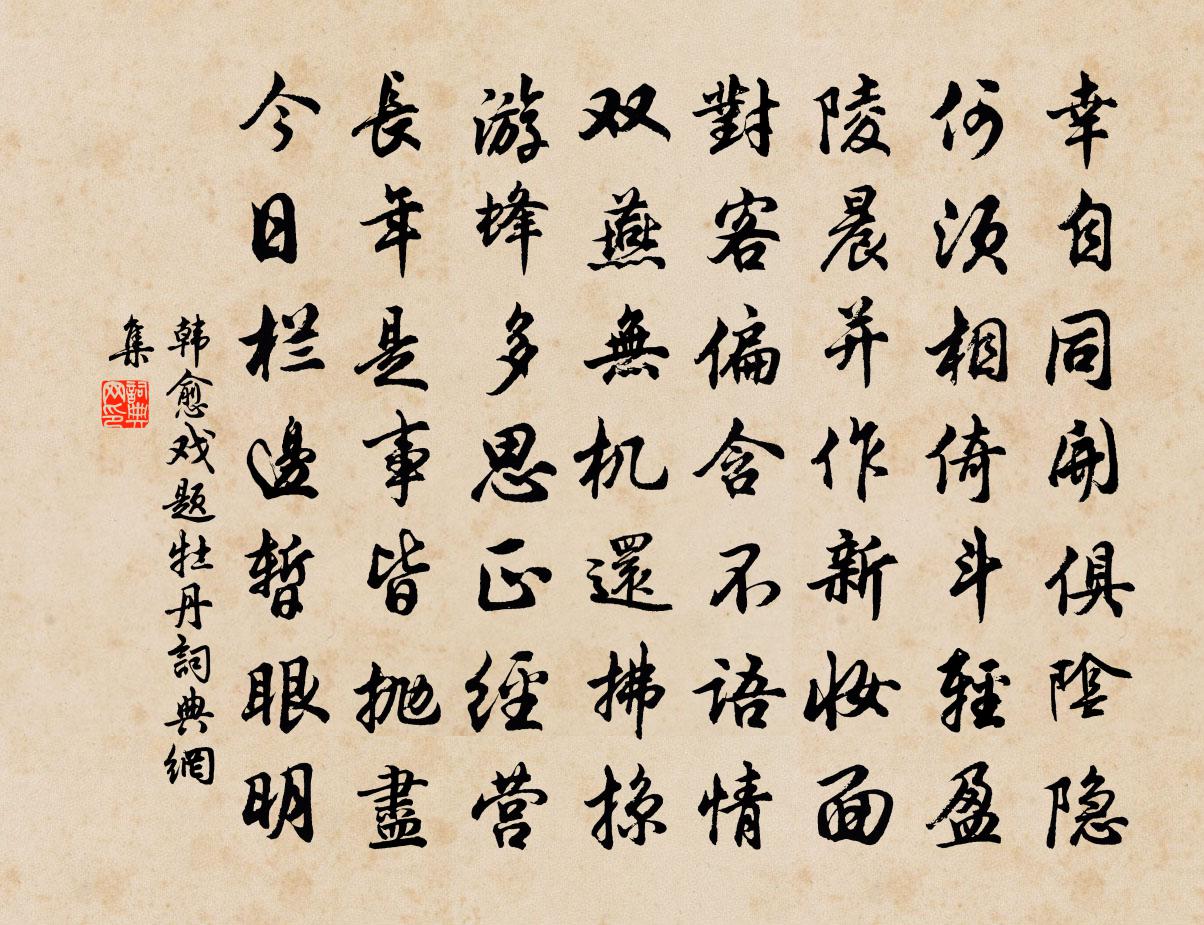 幸自同開俱陰隐
何须相倚斗輕盈
陵晨并作新妆面
對客偏含不语情
双燕無机還拂掠
游蜂多思正經营
長年是事皆抛盡
今日栏邊暫眼明
韩愈戏题牡丹詞典網
集
詞典网印